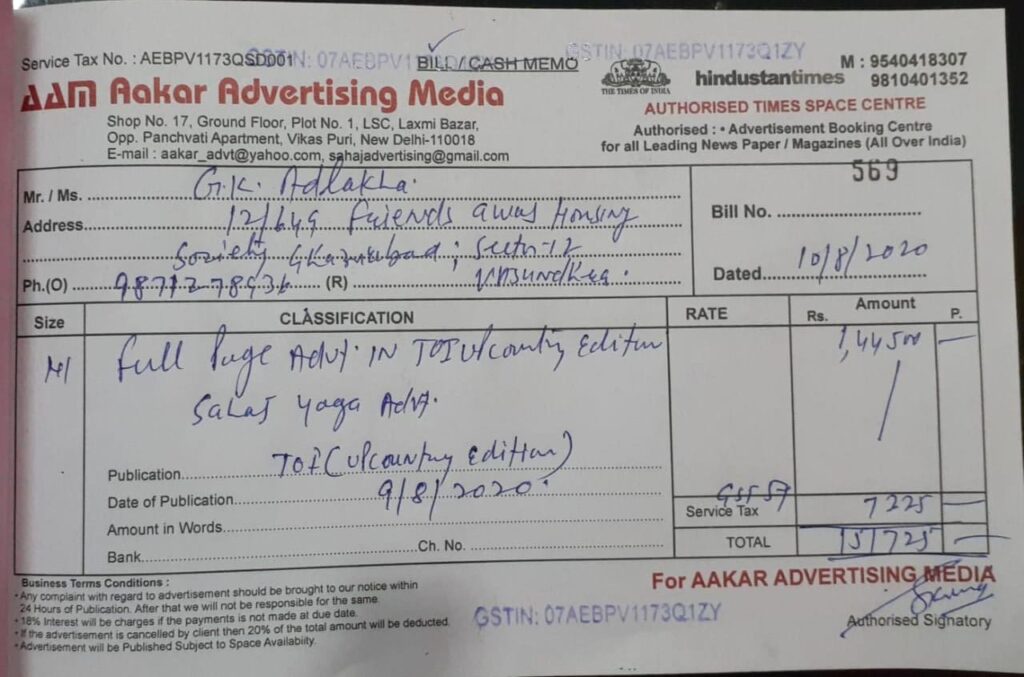 Service Tax No. : AEBPV1173QSD001
GSTIN: 07AEBPV1173Q1ZY
BILL / CASH MEMO
GSTIN: 07AEBPV1173Q1ZY
M : 9540418307
9810401352
AAM Aakar Advertising Media
THE TIMES OF INDIA
hindustantimes
AUTHORISED TIMES SPACE CENTRE
Shop No. 17, Ground Floor, Plot No. 1, LSC, Laxmi Bazar,
Opp. Panchvati Apartment, Vikas Puri, New Delhi-110018
E-mail : aakar_advt@yahoo.com, sahajadvertising@gmail.com
Authorised : • Advertisement Booking Centre
for all Leading News Paper / Magazines (All Over India)
Mr. / Ms. G.K. Adlakha.
Address 12/649 Friends Housing
Society ; Sector-12
Ph.(O) (R)
569
Bill No.
Dated 10/8/2020
Size CLASSIFICATION RATE Amount
Rs. P.
Full Page Advt. IN TOI Upcountry Edition 1,44500
Sahaj Yoga Advt.
Publication TOI (Upcountry Edition)
Date of Publication 9/8/2020
GST 5%
Service Tax 7225
Amount in Words
TOTAL 151725
Bank Ch. No.
Business Terms Conditions :
• Any complaint with regard to advertisement should be brought to our notice within
24 Hours of Publication. After that we will not be responsible for the same.
• 18% Interest will be charges if the payments is not made at due date.
• If the advertisement is cancelled by client then 20% of the total amount will be deducted.
• Advertisement will be Published Subject to Space Availabiity.
For AAKAR ADVERTISING MEDIA
GSTIN: 07AEBPV1173Q1ZY
Authorised Signatory